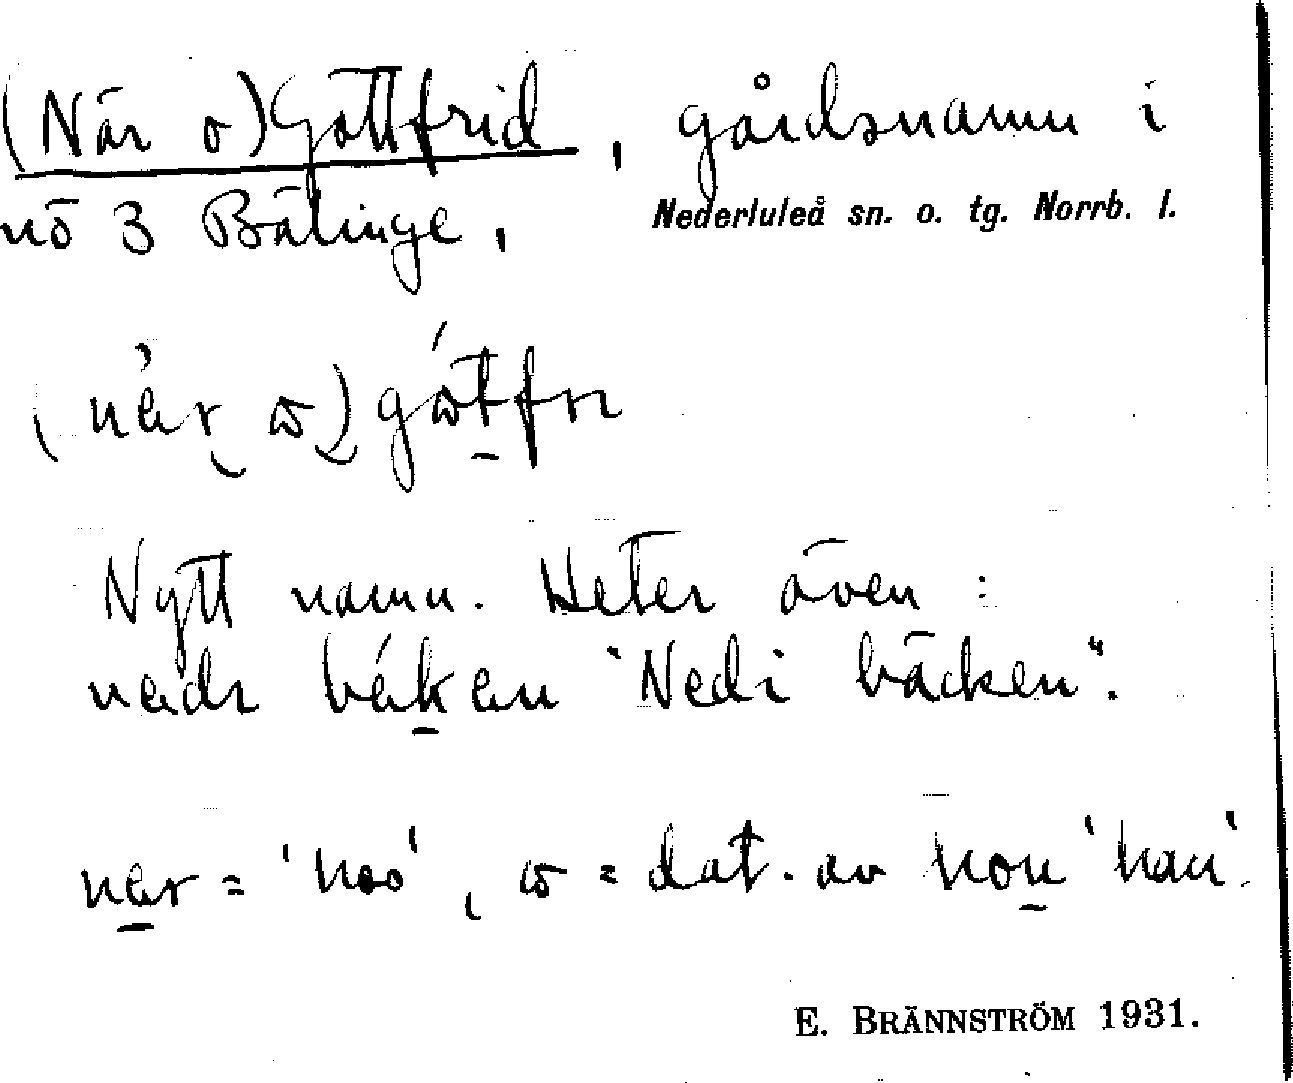 (När o) Gottfrid, gårdsnamn i
nö 3 Bälinge, Nederluleå sn. o. tg. Norrb. l.
Nytt namn. Heter även :
"Nedi bäcken".
= 'hos', = dat. av hon 'han'.
E. BRÄNNSTRÖM 1931.